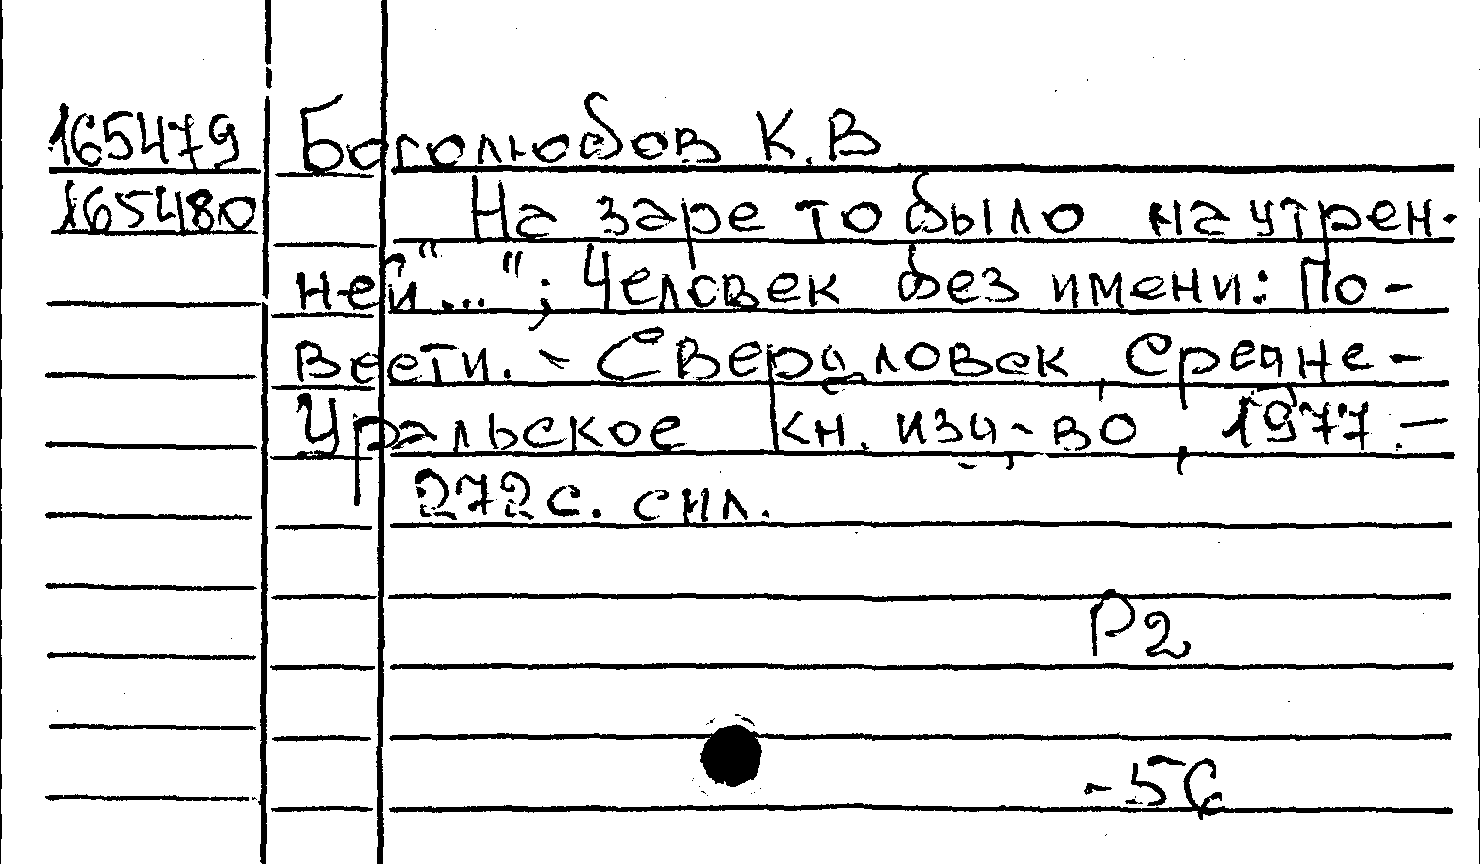 165479 Боголюбов К.В
165480 На заре то было на утрен-
ней"..."; Человек без имени: По-
вести. - Свердловск, Средне-
Уральское кн. изд-во, 1977.-
272с. с ил.
Р2